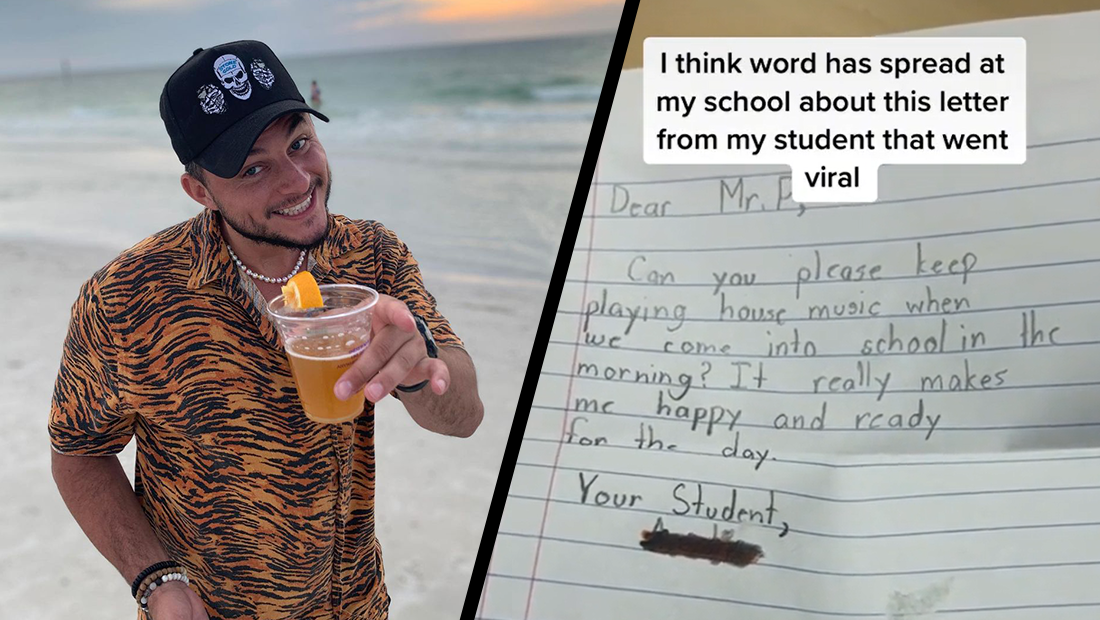 I think word has spread at
my school about this letter
from my student that went
viral
Dear Mr. P,
Can you please keep
playing house music when
we come into school in the
morning? It really makes
me happy and ready
for the day.
Your Student,